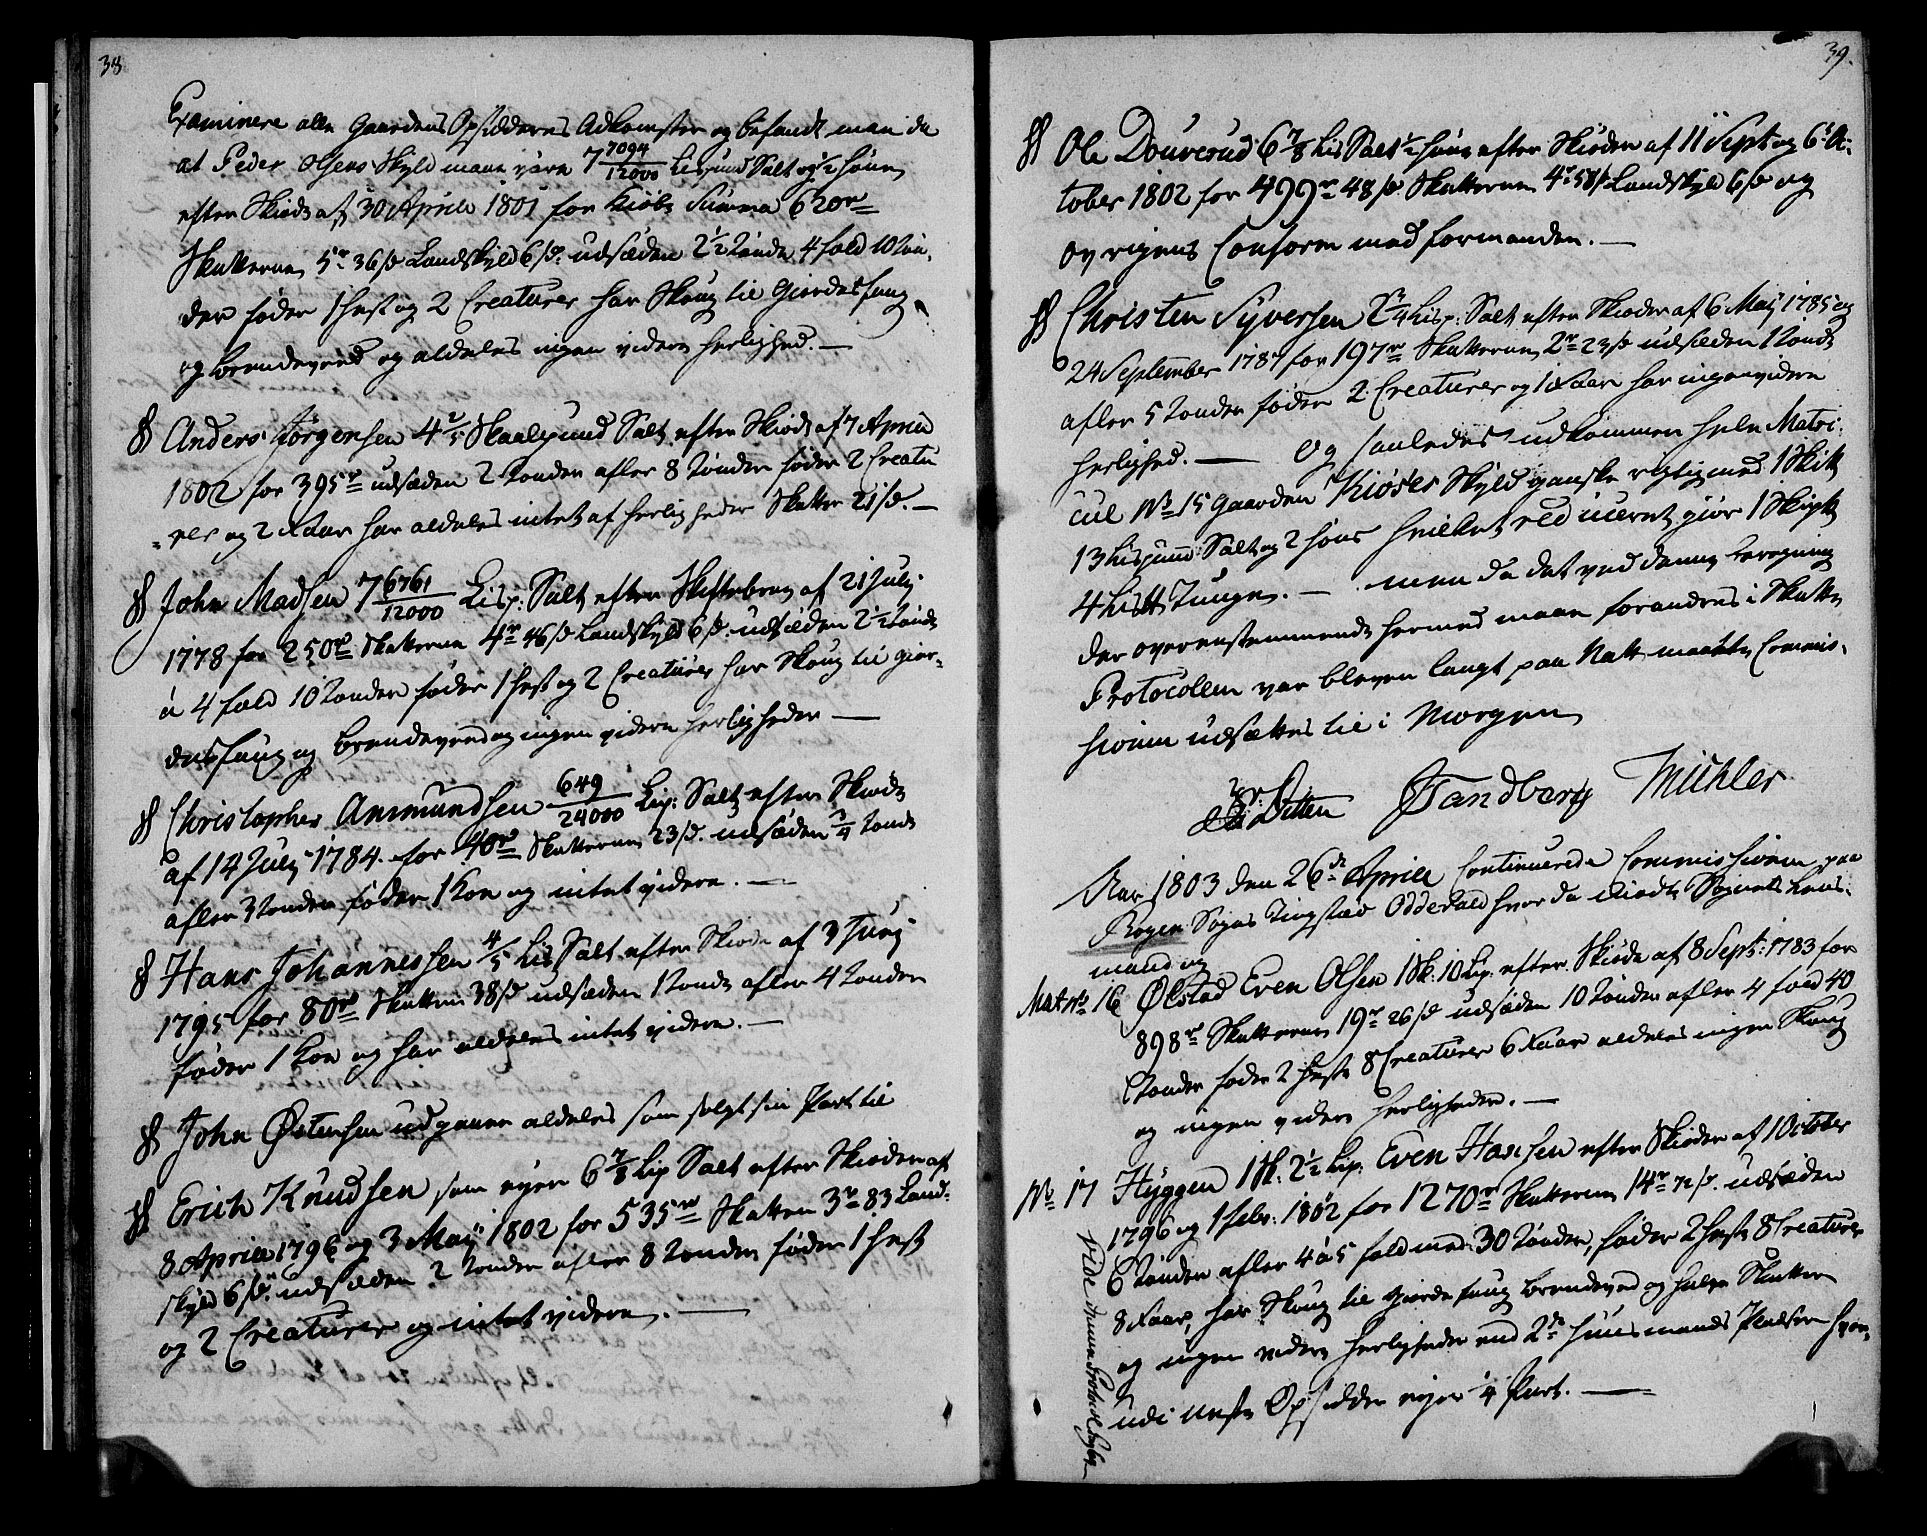 38
Examinere alle Gaardens Opsidderes Adkomster og befandt man da
at Peder Olsens Skyld maae være 7 7094/12000 Lispund Salt og ½ Høne
efter Skiøde af 30 Aprill 1801 for Kiøbe Summa 620 rd
Skatterne 5 rd 36 s Landskyld 6 s. udsæden 2½ Tønde 4 fold 10 Tøn-
der føder 1 Hest og 2 Creaturer har Skoug til Giærdesfang
og brændeveed og aldeles ingen videre herlighed. —
§ Anders Jørgensen 4⅘ Skaalpund Salt efter Skiøde af 7 Aprill
1802 for 395 rd udsæden 2 Tønder afler 8 Tønder føder 2 Creatu
rer og 2 Faar har aldeles intet af herligheder Skatter 21 s. —
§ John Madsen 7 6761/12000 Lisp: Salt efter Skiftebrev af 21 July
1778 for 250 rd Skatterne 4 rd 46 s Landskyld 6 s. udsæden 2½ Tønde
à 4 fold 10 Tønder føder 1 Hest og 2 Creaturer har Skoug til giær-
desfang og brændeveed og ingen videre herligheder —
§ Christopher Anmundsen 649/24000 Lip: Salt efter Skiøde
af 14 July 1784 for 40 rd Skatterne 23 s. udsæden ¾ Tønde
afler 3 Tønder føder 1 Koe og intet videre. —
§ Hans Johannessen ⅘ Lis Salt efter Skiøde af 3 Juny
1795 for 80 rd Skatten 38 s udsæden 1 Tønde afler 4 Tønder
føder 1 Koe og har aldeles intet videre. —
§ John Østensen udgaaer aldeles som solgt sin Part til
§ Erich Knudsen som ejer 6⅞ Lip Salt efter Skiøder af
8 Aprill 1796 og 3 Maij 1802 for 535 rd Skatten 3 rd 83 Land-
skyld 6 s. udsæden 2 Tønder afler 8 Tønder føder 1 Hest
og 2 Creaturer og intet videre. —
39.
§ Ole Dourerud 6⅞ Lis Salt ½ Høne efter Skiøder af 11 Sept og 6 Oc-
tober 1802 for 499 rd 48 s Skatterne 4 rd 58 s Landskyld 6 s og
øvrigens Conform med formanden. —
§ Christen Syversen 2¾ Lisp: Salt efter Skiøder af 6 Maij 1785 og
24 September 1787 for 197 rd Skatterne 2 rd 23 s udsæden 1 Tønde
afler 5 Tønder føder 2 Creaturer og 1 Faar har ingen videre
herlighed. — Og saaledes udkommer hele Matri-
cul No 15 Gaarden Kiøses Skyld ganske rigtig med 1 Skitt
13 Lispund Salt og 2 Høns hvilket reduceret giør 1 Skipd
4 Lis Tunge. — men da det ved denne beregning
der overensstemmende hermed maae forandres i Skatte
Protocollen var bleven langt paa Natt maatte Commis-
sionen udsættes til i Morgen
Ditten Sandberg Michler
Aar 1803 den 26de Aprill Continuerede Commissionen paa
Røgen Sogns Tingstæd Oddevald hvor da mødte Sognets Lens-
mand og
Matr No 16 Ølstad Even Olsen 1 Sk: 10 Lip. efter Skiøde af 8 Sept: 1783 for
898 rd Skatterne 19 rd 26 s udsæden 10 Tønder afler 4 fold 40
Tønder føder 2 Heste 8 Creaturer 6 Faar aldeles ingen Skoug
og ingen videre herligheder. —
No 17 Hyggen 1 Sk: 2½ Lip: Even Hansen efter Skiøder af 1 October
1796 og 1 Febr: 1802 for 1270 rd Skatterne 14 rd 72 s. udsæden
6 Tønder afler 4 à 5 fold med 30 Tønder, føder 2 Heste 8 Creaturer
8 Faar, har Skoug til Giærdesfang brændeved og halve Skatter
og ingen videre herligheder end 2de Huusmands Pladser hvor-
udi neste Opsidder ejer ¼ Part. —
Vide